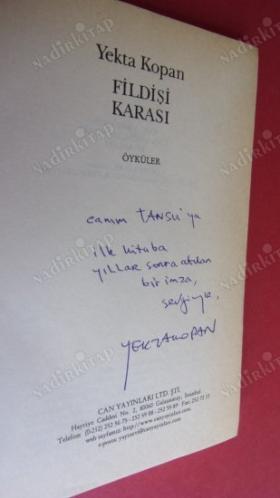 Yekta Kopan
FİLDİŞİ
KARASI
ÖYKÜLER
canım TANSU'ya
ilk kitaba
yıllar sonra atılan
bir imza,
sevgiyle,
YEKTA KOPAN
CAN YAYINLARI LTD. ŞTİ.
Hayriye Caddesi No. 2, 80060 Galatasaray, İstanbul
Telefon: (0-212) 252 56 75 - 252 59 88 - 252 59 89 Fax: 252 72 33
web sayfamız: http://www.canyayinlari.com
e-posta: yayinevi@canyayinlari.com
NADİRKİTAP